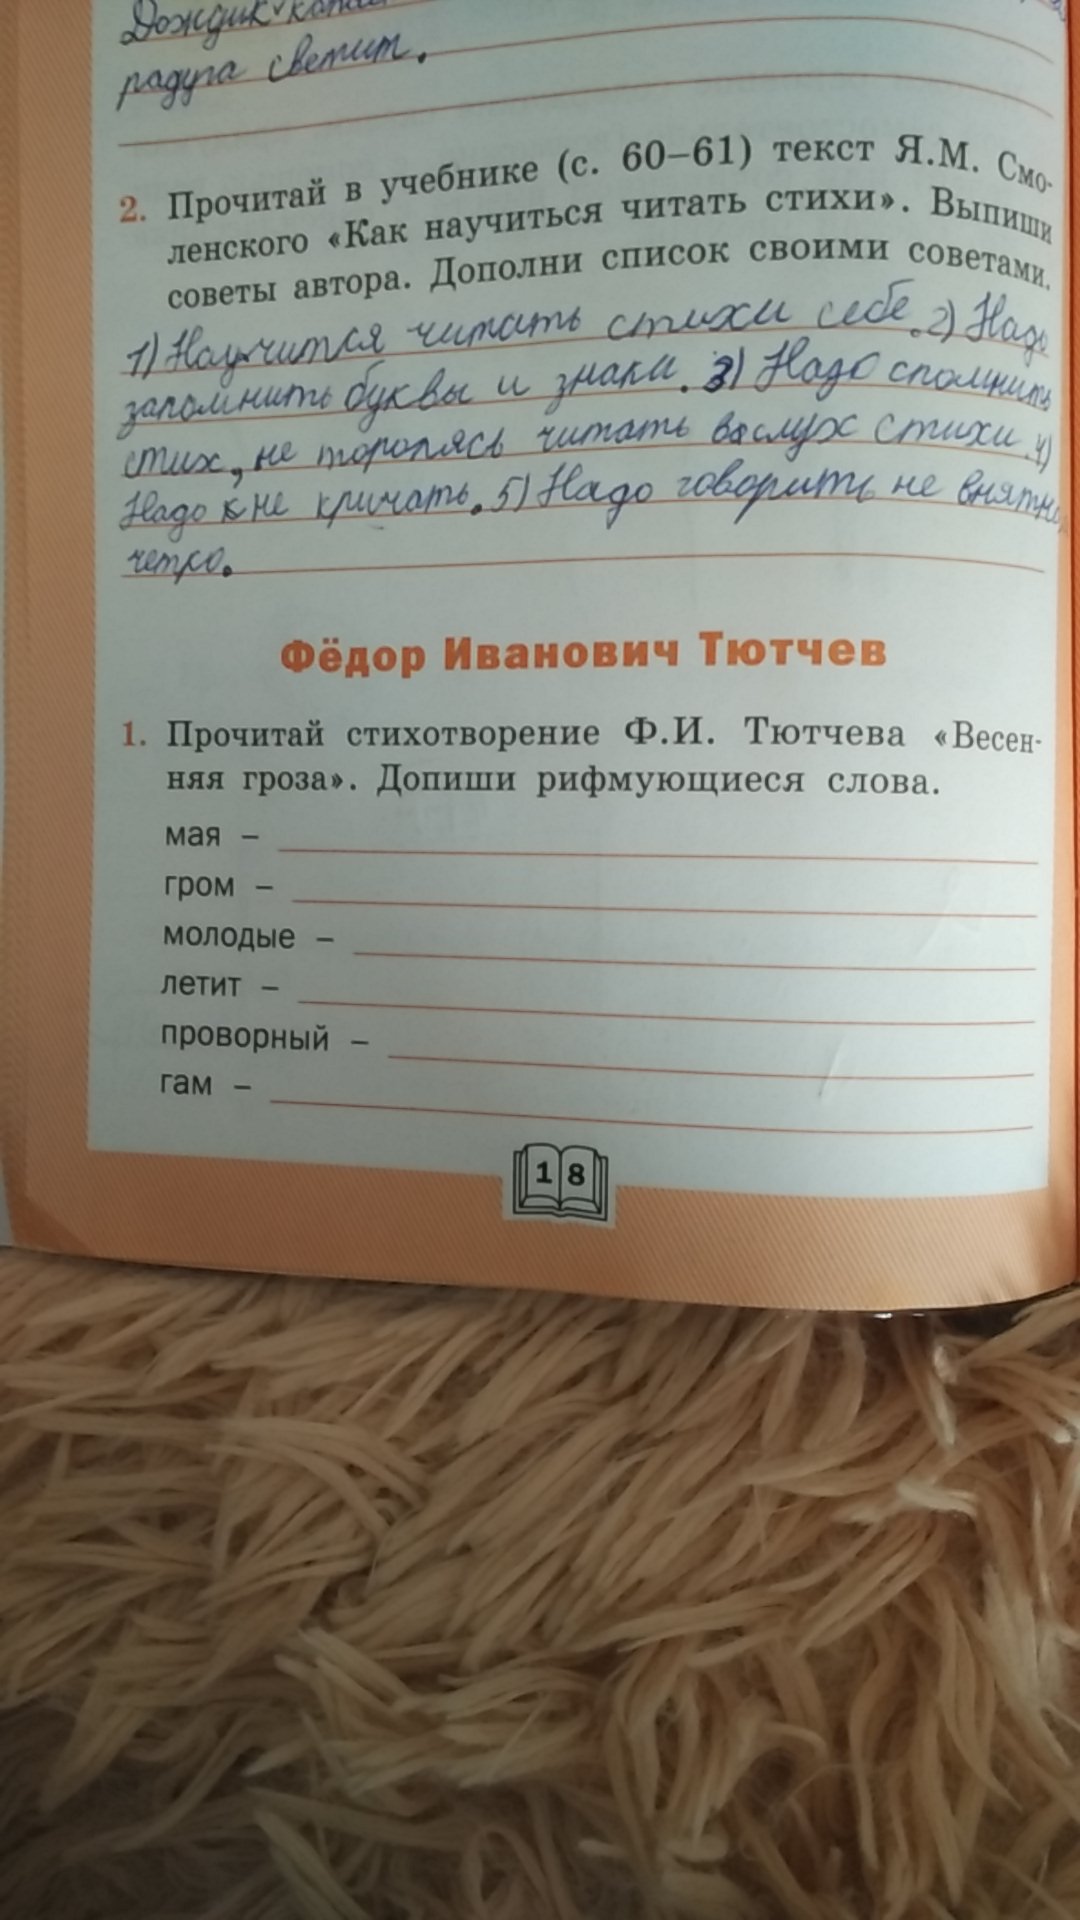 Дождик
радуга светит.
2. Прочитай в учебнике (с. 60–61) текст Я.М. Смо-
ленского «Как научиться читать стихи». Выпиши
советы автора. Дополни список своими советами.
1) Научится читать стихи себе. 2) Надо
запомнить буквы и знаки. 3) Надо спомнить
стих, не торопясь читать вслух стихи 4)
Надо не кричать. 5) Надо говорить не внятно,
четко.
Фёдор Иванович Тютчев
1. Прочитай стихотворение Ф.И. Тютчева «Весен-
няя гроза». Допиши рифмующиеся слова.
мая –
гром –
молодые –
летит –
проворный –
гам –
18